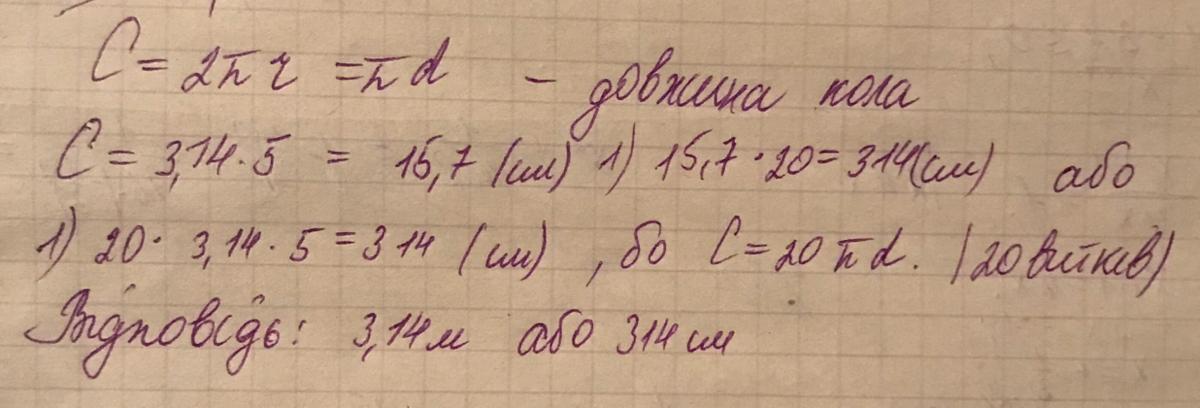 C = 2πr = πd – довжина кола
C = 3,14 · 5 = 15,7 (см) 1) 15,7 · 20 = 314 (см) або
1) 20 · 3,14 · 5 = 314 (см) , бо C = 20 πd. (20 витків)
Відповідь: 3,14 м або 314 см